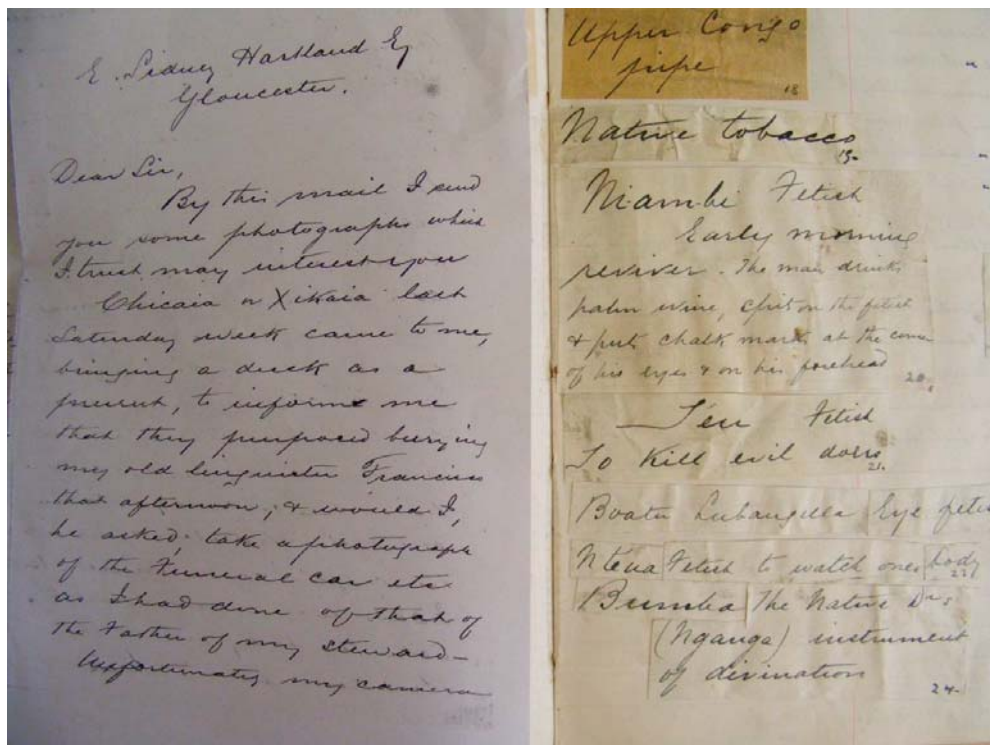 E. Sidney Hartland Esq
Gloucester.
Dear Sir,
By this mail I send
you some photographs which
I trust may interest you
Chicaia or Xikaia last
Saturday week came to me,
bringing a duck as a
present, to inform me
that they purposed burying
my old linguister Francisco
that afternoon, & would I,
he asked, take a photograph
of the Funeral car etc
as I had done of that of
the Father of my steward—
Unfortunately my camera
Upper Congo
pipe
18
Native tobacco
19.
Fetish
Early morning
reviver. The man drinks
palm wine, spits on the fetish
& puts chalk marks at the corner
of his eyes & on his forehead
20.
Fetish
To Kill evil doers
21.
Boatu Eye fetis
Fetish to watch ones body
Bumba The Native Drs
(Nganga) instrument
of divination
24.